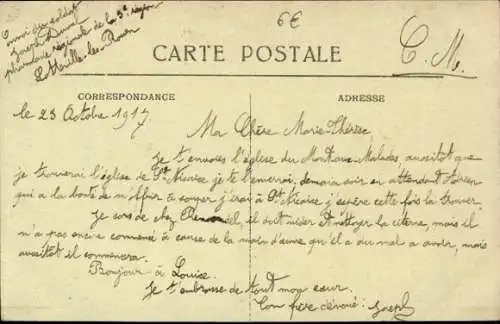 Envoi du soldat
Joseph Duval
pharmacie régionale de la 3e région
6€
C.M.
CARTE POSTALE
CORRESPONDANCE
ADRESSE
le 23 Octobre 1917.
Ma Chère Marie-Thérèse
Je t'envoies l'église du Mont aux Malades, aussitot que
je trouverai l'église de St Nicaise je te l'enverrai, demain soir en attendant Adrien
qui a la bonté de m'offrir à souper j'irai à St Nicaise j'espère cette fois la trouver.
Je sors de chez il doit vider et nettoyer la citerne, mais il
n'a pas encore commencé à cause de la main d'œuvre qu'il a du mal a avoir, mais
aussitot il commencera.
Bonjour à Louise.
Je t'embrasse de tout mon cœur.
Ton frère dévoué. Joseph